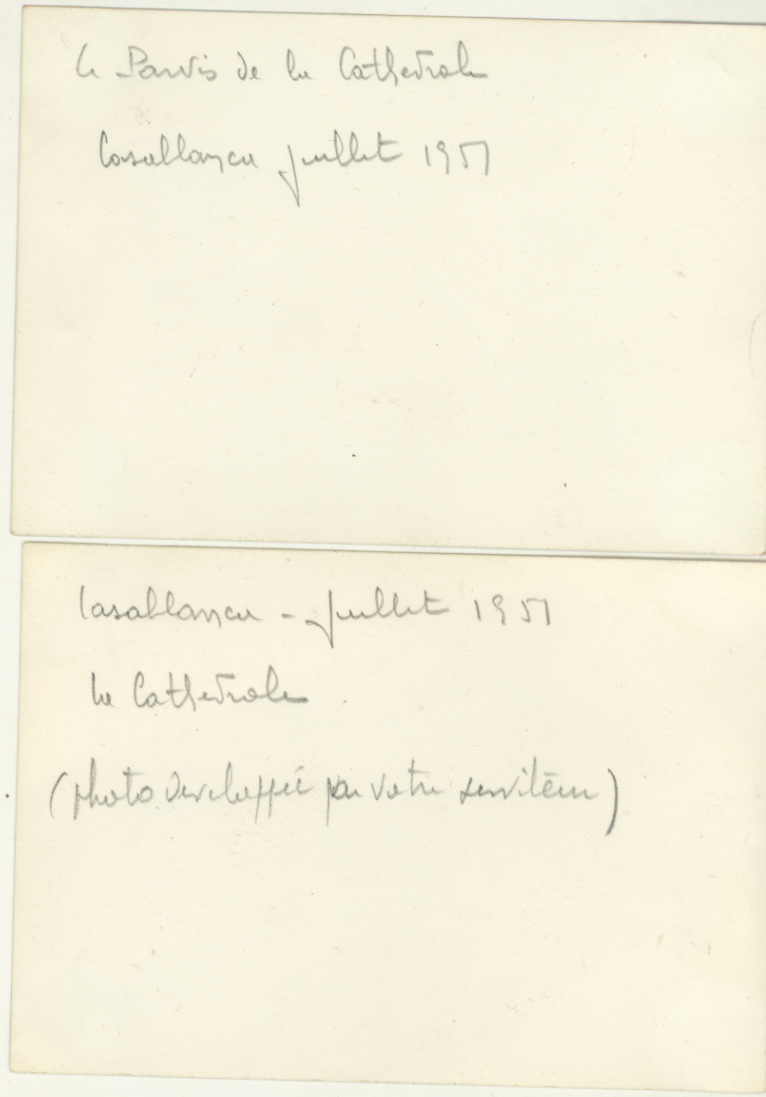 Le Parvis de la Cathedrale
Casablanca juillet 1951
Casablanca - juillet 1951
La Cathedrale
(photo developpée par votre serviteur)